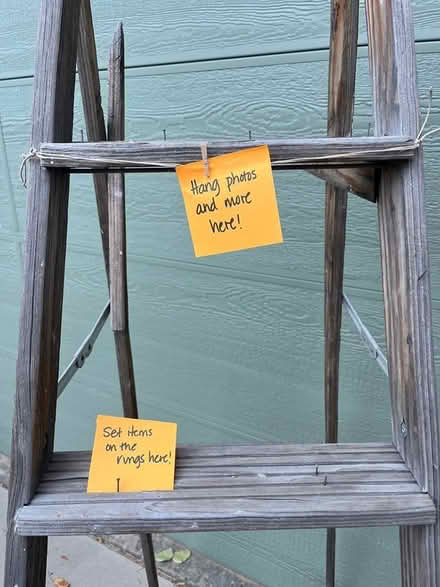 Hang photos
and more
here!
Set items
on the
rungs here!